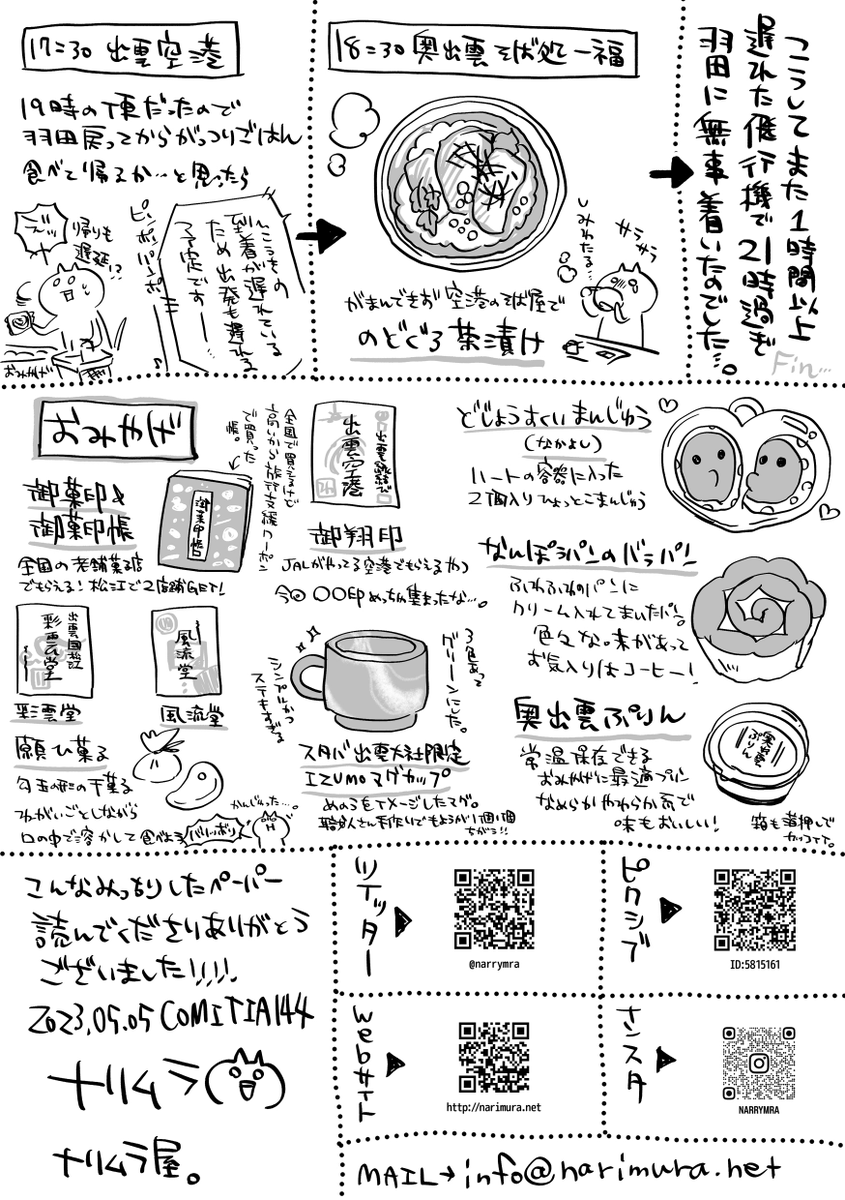 17:30 出雲空港
19時の便だったので
羽田戻ってからがっつりごはん
食べて帰るか…と思ったら
ピンポンパンポーン♪
到着が遅れている
ため出発も遅れる
予定ですー…
帰りも
遅延!?
おみやげ
18:30 奥出雲そば処一福
しみわたる…
サラサラ
がまんできず空港のそば屋で
のどぐろ茶漬け
こうしてまた1時間以上
遅れた飛行機で21時過ぎ
羽田に無事着いたのでした…。
Fin...
おみやげ
御菓印&
御菓印帳
全国の老舗菓子店
でもらえる!松江で2店舗GET!
御菓印帳
全国で買えるけど
高いから旅行支援クーポン
で買った
帳。
出雲国松江
彩雲堂
彩雲堂
風流堂
風流堂
願ひ菓子
勾玉の形の干菓子
ねがいごとしながら
口の中で溶かして食べよう
バリッボリ
かんじゃった…。
出雲縁結び
出雲空港
御翔印
JALがやってる空港でもらえるやつ
今回〇〇印めっちゃ集まったな…。
シンプルかつ
ステキすぎる
3色あって
グリーンにした。
スタバ出雲大社限定
IZUMOマグカップ
めのうをイメージしたマグ。
職人さん手作りでもようが1個1個
ちがう!!
どじょうすくいまんじゅう
(なかよし)
ハートの容器に入った
2個入りひょっとこまんじゅう
なんぽうパンのバラパン
ふわふわのパンに
クリーム入れてまいたパン。
色々な味があって
お気入りはコーヒー!
奥出雲ぷりん
常温保存できる
おみやげに最適プリン
なめらかやわらか系で
味もおいしい!
奥出雲
ぷりん
箱も箔押しで
カワイイ。
こんなみっちりしたペーパー
読んでくださりありがとう
ございました!!!!
2023.05.05 COMITIA144
ナリムラ
ナリムラ屋。
ツイッター
@narrymra
ピクシブ
ID:5815161
webサイト
http://narimura.net
インスタ
NARRYMRA
MAIL→info@narimura.net